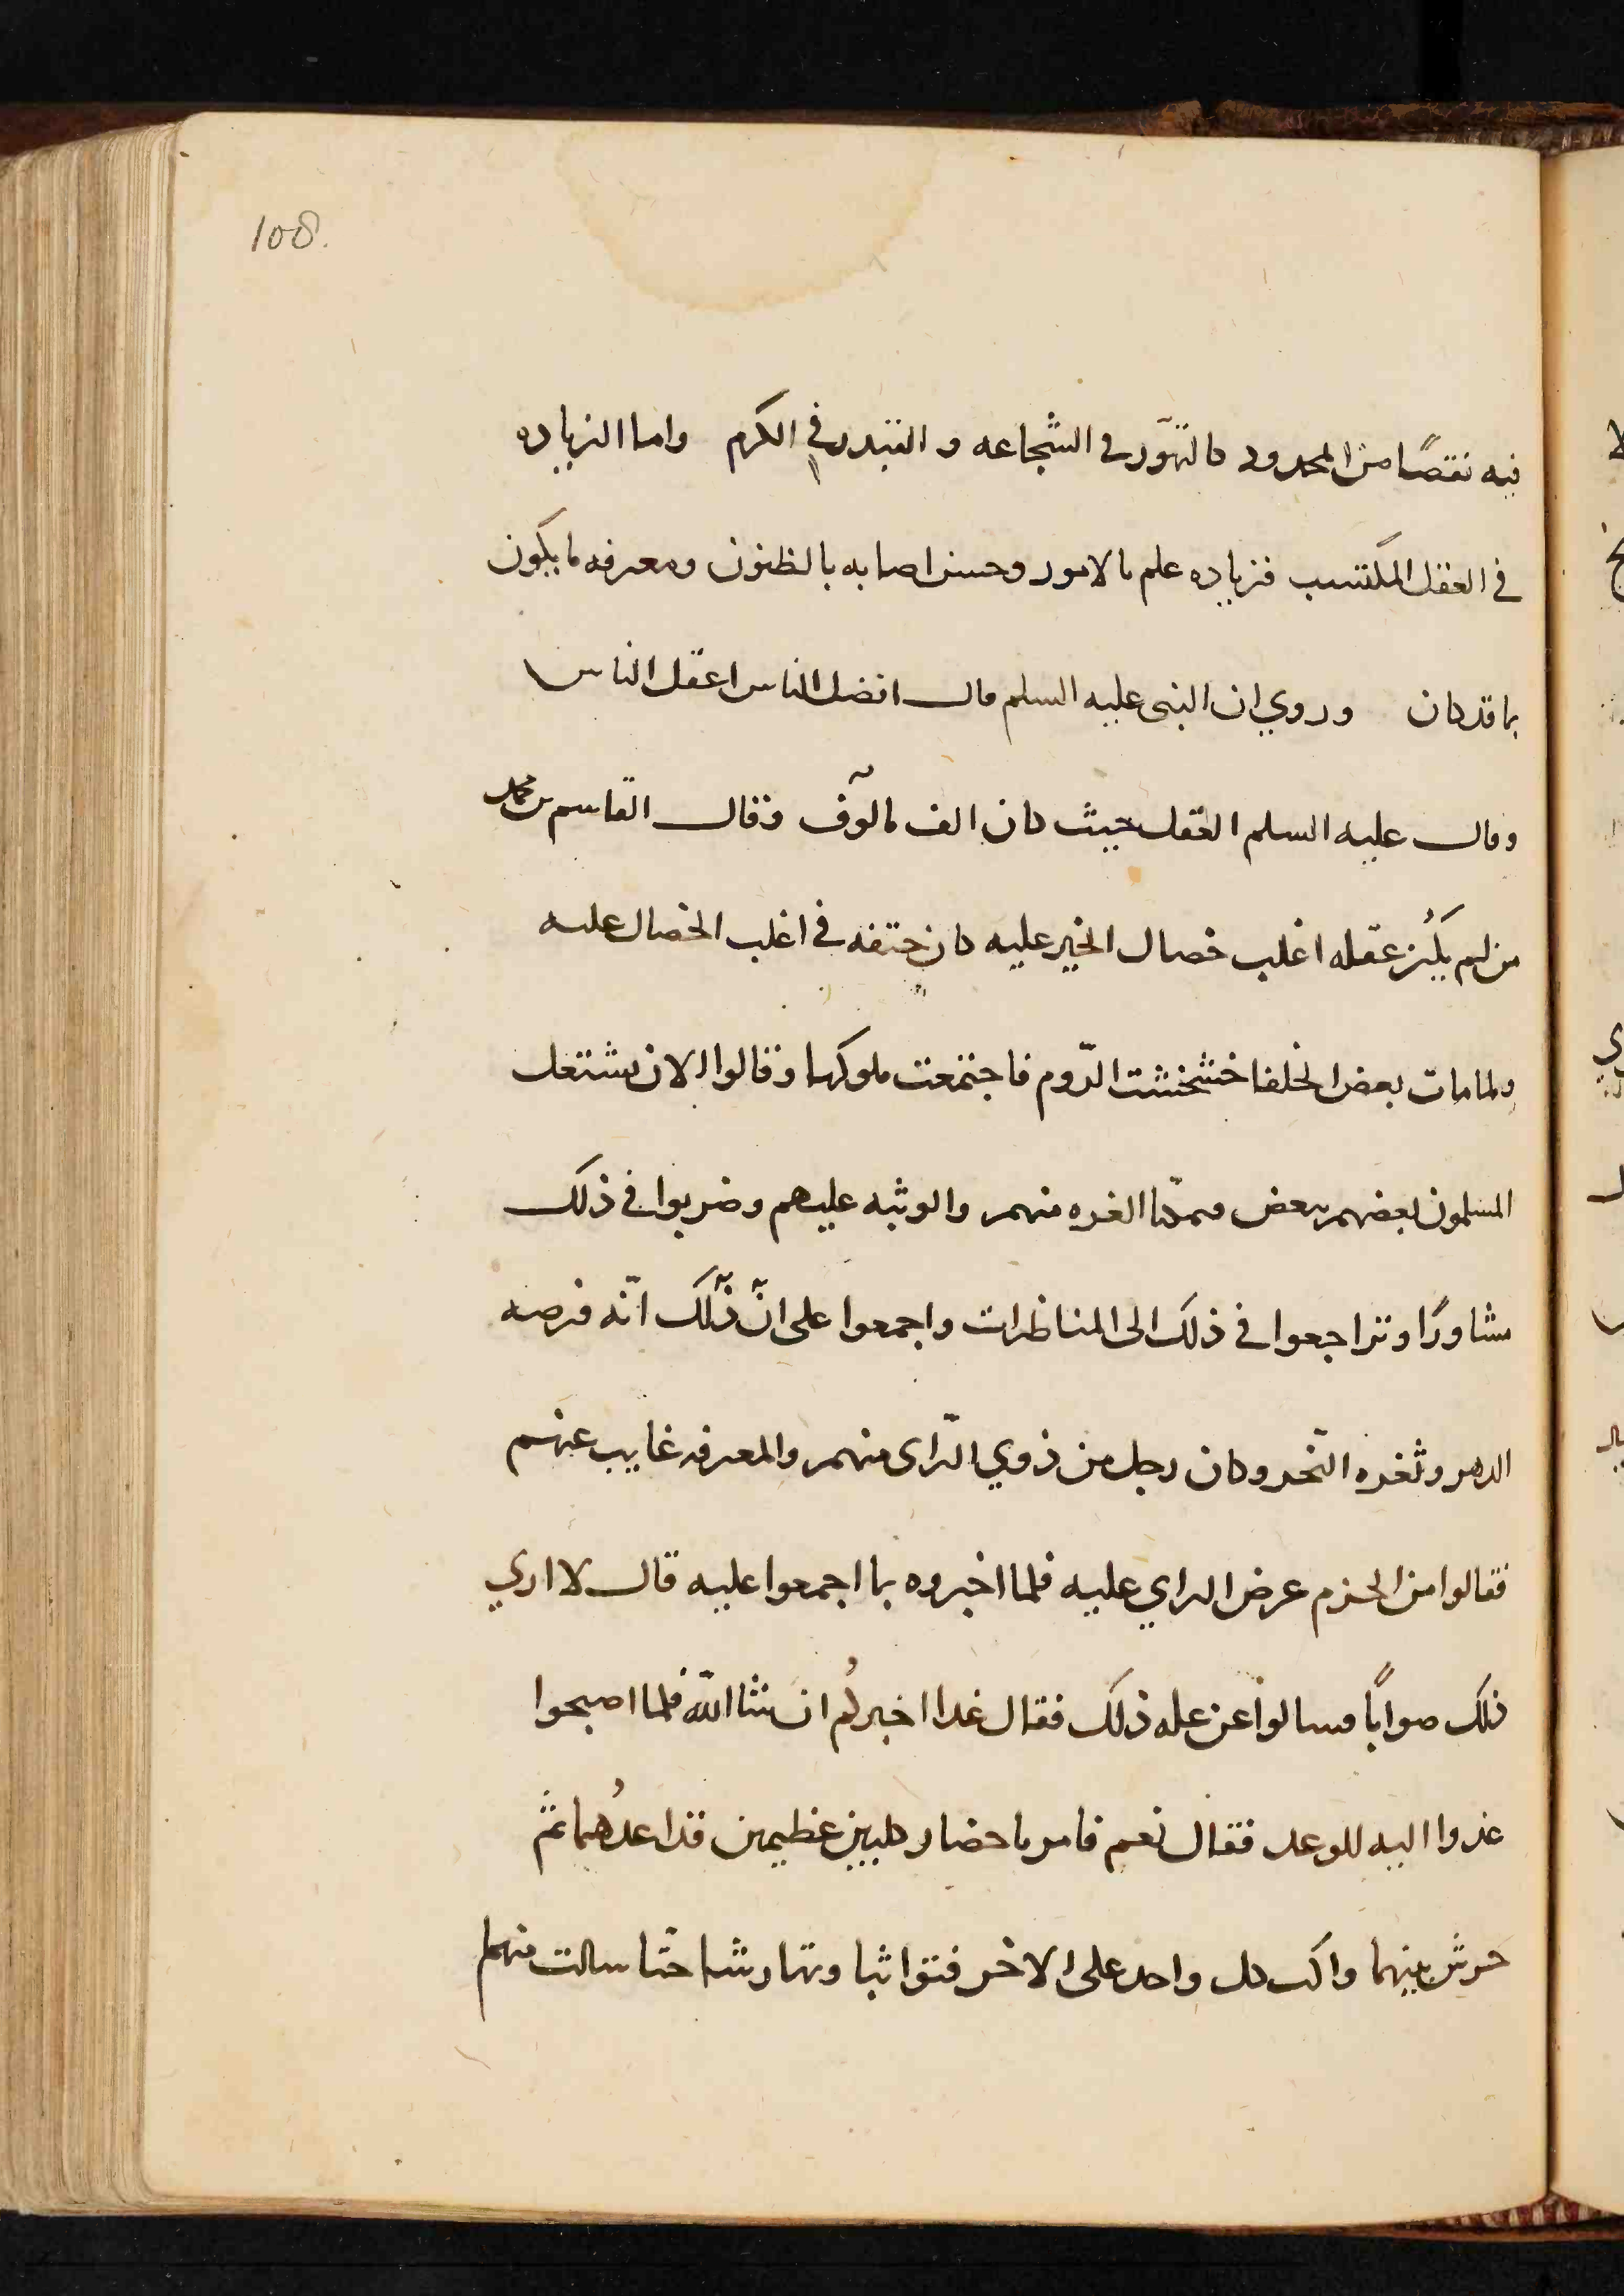 108.
فيه نقصًا من المحدود كالتهوّر في الشجاعه و التبدر في الكرم واما الزياده
في العقل المكتسب فزياده علم بالامور وحسن اصابه بالظنون ومعرفه ما يكون
بما قد كان وروي ان النبى عليه السلم قال افضل الناس اعقل الناس
وقال عليه السلم العقل حيث كان الف مالوف وقال القاسم بن محمد
من لم يكُن عقله اغلب خصال الخير عليه كان حتفه في اغلب الخصال عليه
ولما مات بعض الخلفا خشخشت الرّوم فاجتمعت ملوكها وقالوا الان يشتغل
المسلمون بعضهم ببعض الغره منهم والوثبه عليهم وضربوا في ذلك
مشاورًا وتراجعوا في ذلك الى المناظرات واجمعوا على انّ ذلك انّه فرصه
الدهر وثغره النّحر وكان رجل من ذوي الرّاى منهم والمعرفه غايب عنهم
فقالوا من الحزم عرض الراي عليه فلما اخبروه بما اجمعوا عليه قال لا اري
ذلك صوابًا فسالوا عن عله ذلك فقال غدا اخبركُم ان شا اللّه فلما اصبحوا
غدوا اليه للوعد فقال نعم فامر باحضار كلبين عظيمين قد اعدُهما ثمّ
حرش بينهما والب كل واحد على الاخر فتواثبا وتهارشا حتّا سالت منهما